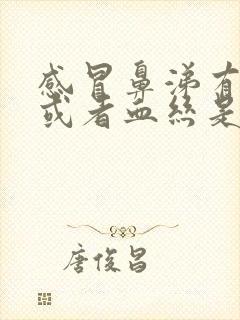 感冒鼻涕有
或者血丝是
唐俊昌